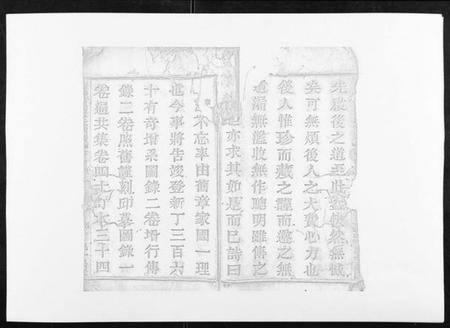 先啟後之道至此
矣可無煩後人之大費心力也
後人惟珍而藏之謹而遵之無
遺漏無濫收無作聰明雖傳之
亦求其如是而已詩曰
不忘率由舊章家國一理
也今事將告竣登新丁三百六
十有奇增系圖錄二卷增行傳
錄二卷照舊謹刻印墓圖錄一
卷過共集卷四十 本三十四